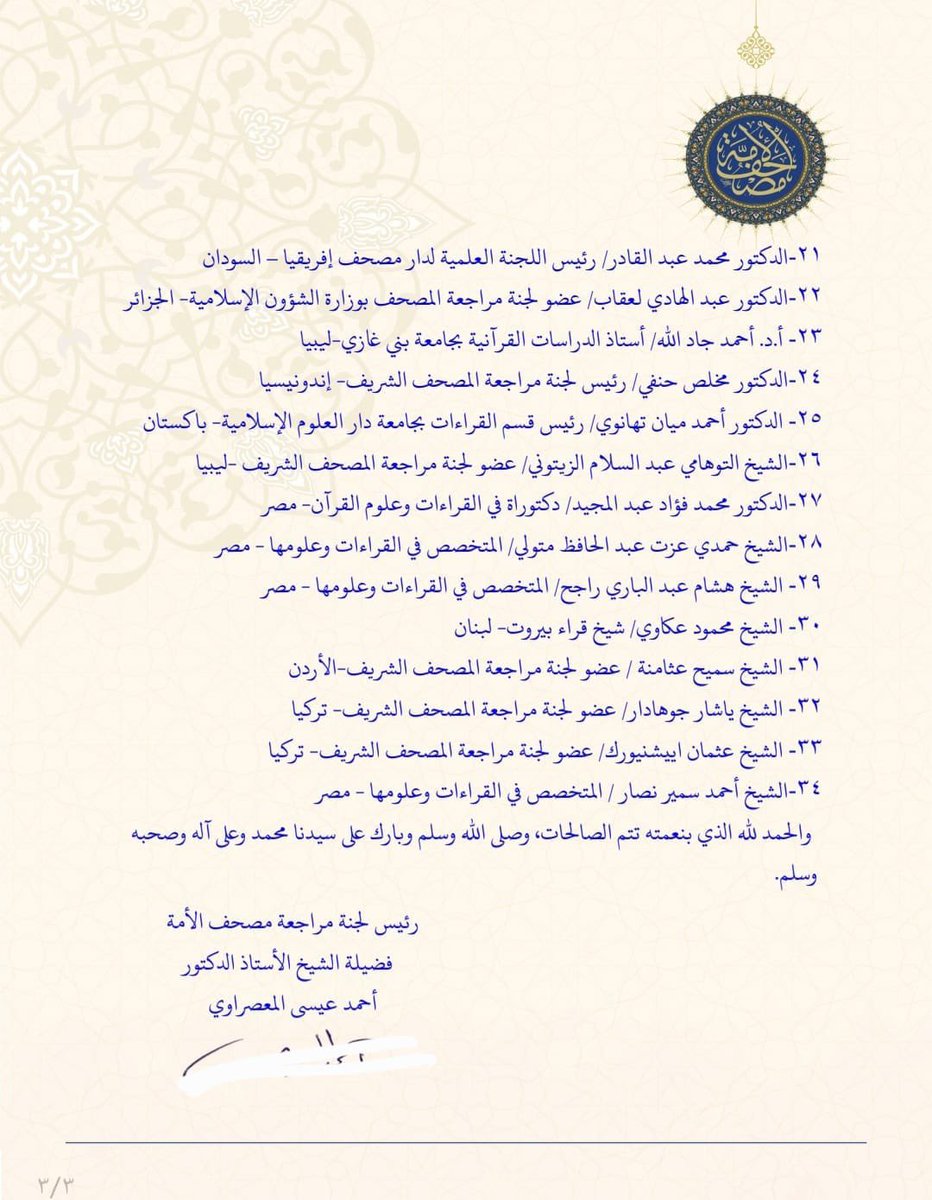 مصحف الأمة
٢١-الدكتور محمد عبد القادر/ رئيس اللجنة العلمية لدار مصحف إفريقيا – السودان
٢٢-الدكتور عبد الهادي لعقاب/ عضو لجنة مراجعة المصحف بوزارة الشؤون الإسلامية- الجزائر
٢٣- أ.د. أحمد جاد الله/ أستاذ الدراسات القرآنية بجامعة بني غازي-ليبيا
٢٤-الدكتور مخلص حنفي/ رئيس لجنة مراجعة المصحف الشريف- إندونيسيا
٢٥- الدكتور أحمد ميان تهانوي/ رئيس قسم القراءات بجامعة دار العلوم الإسلامية- باكستان
٢٦-الشيخ التوهامي عبد السلام الزيتوني/ عضو لجنة مراجعة المصحف الشريف -ليبيا
٢٧-الدكتور محمد فؤاد عبد المجيد/ دكتوراة في القراءات وعلوم القرآن- مصر
٢٨-الشيخ حمدي عزت عبد الحافظ متولي/ المتخصص في القراءات وعلومها - مصر
٢٩- الشيخ هشام عبد الباري راجح/ المتخصص في القراءات وعلومها - مصر
٣٠- الشيخ محمود عكاوي/ شيخ قراء بيروت- لبنان
٣١- الشيخ سميح عثامنة / عضو لجنة مراجعة المصحف الشريف-الأردن
٣٢- الشيخ ياشار جوهادار/ عضو لجنة مراجعة المصحف الشريف- تركيا
٣٣- الشيخ عثمان اييشنيورك/ عضو لجنة مراجعة المصحف الشريف- تركيا
٣٤-الشيخ أحمد سمير نصار / المتخصص في القراءات وعلومها - مصر
والحمد لله الذي بنعمته تتم الصالحات، وصلى الله وسلم وبارك على سيدنا محمد وعلى آله وصحبه
وسلم.
رئيس لجنة مراجعة مصحف الأمة
فضيلة الشيخ الأستاذ الدكتور
أحمد عيسى المعصراوي
٣/٣